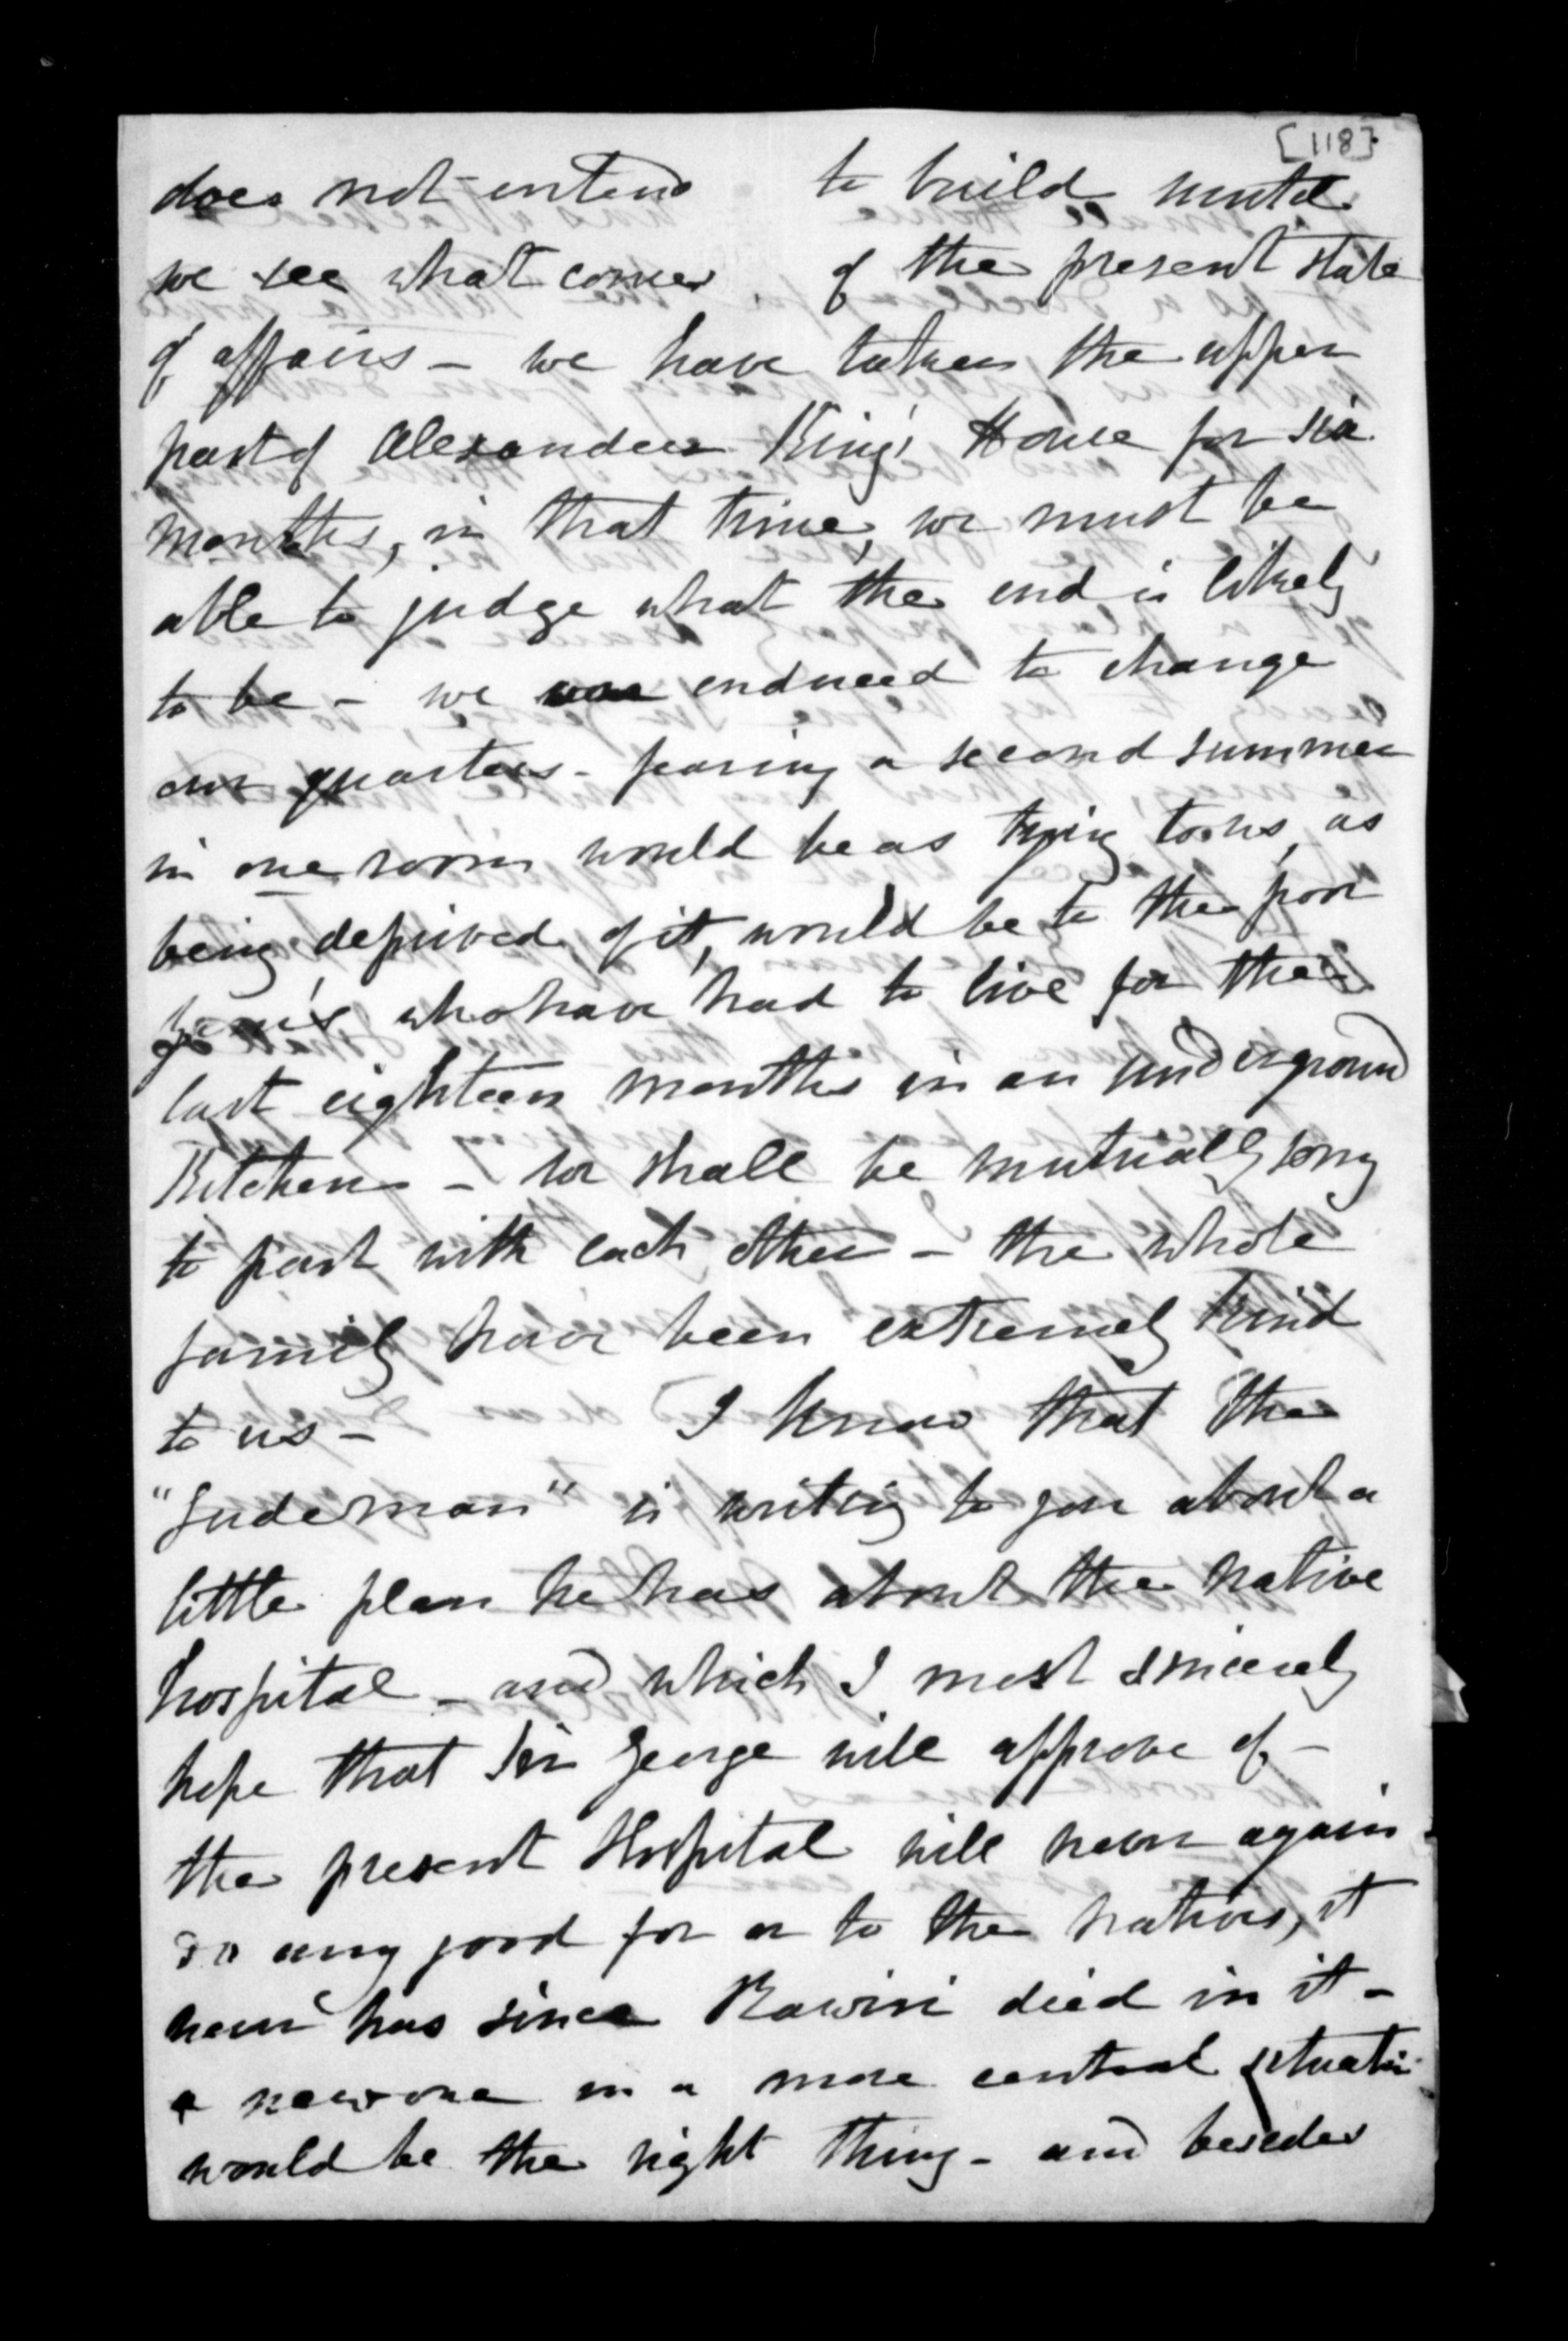 [118]
does not intend to build until
we see what comes of the present state
of affairs - we have taken the upper
part of Alexander King's House for six
months, in that time, we must be
able to judge what the end is likely
to be - we was enduced to change
our quarters - fearing a second summer
in one room would be as trying to us, as
being deprived of it, would be to the poor
who have had to live for the
last eighteen months in an underground
Kitchen - we shall be mutually sorry
to part with each other - the whole
family have been extremely kind
to us - I know that the
"Gudeman" is writing to you about a
little plan he has about the native
hospital - and which I most sincerely
hope that Sir George will approve of -
the present Hospital will never again
do any good for or to the natives, it
never has since Rawiri died in it -
a new one in a more central situatin
would be the right thing - and besides